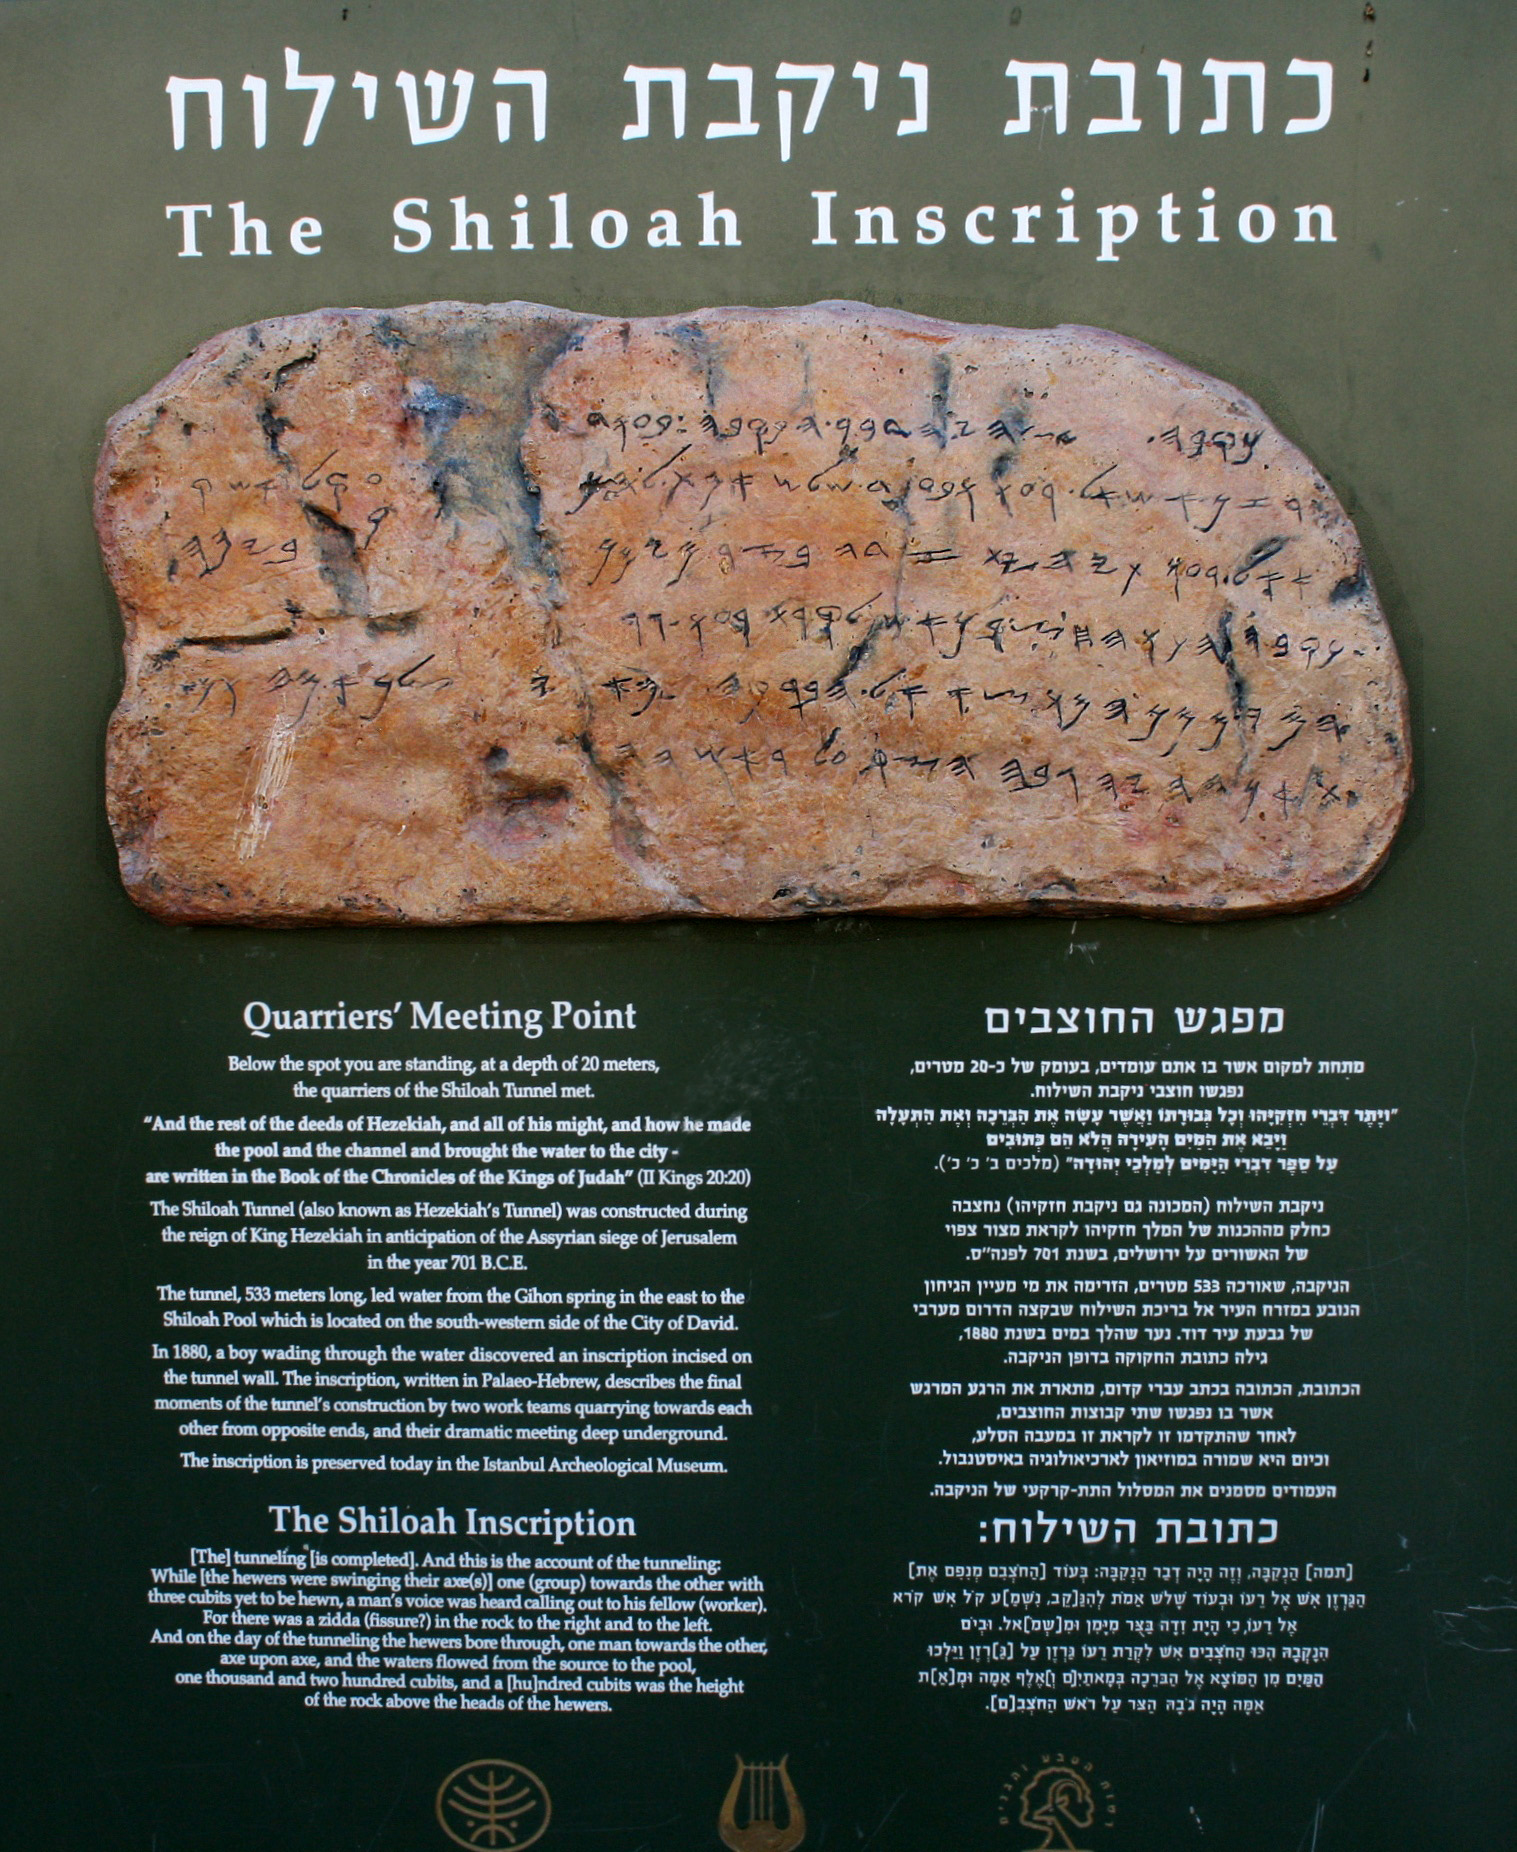 כתובת ניקבת השילוח
The Shiloah Inscription
Quarriers' Meeting Point
Below the spot you are standing, at a depth of 20 meters,
the quarriers of the Shiloah Tunnel met.
"And the rest of the deeds of Hezekiah, and all of his might, and how he made
the pool and the channel and brought the water to the city -
are written in the Book of the Chronicles of the Kings of Judah" (II Kings 20:20)
The Shiloah Tunnel (also known as Hezekiah's Tunnel) was constructed during
the reign of King Hezekiah in anticipation of the Assyrian siege of Jerusalem
in the year 701 B.C.E.
The tunnel, 533 meters long, led water from the Gihon spring in the east to the
Shiloah Pool which is located on the south-western side of the City of David.
In 1880, a boy wading through the water discovered an inscription incised on
the tunnel wall. The inscription, written in Palaeo-Hebrew, describes the final
moments of the tunnel's construction by two work teams quarrying towards each
other from opposite ends, and their dramatic meeting deep underground.
The inscription is preserved today in the Istanbul Archeological Museum.
The Shiloah Inscription
[The] tunneling [is completed]. And this is the account of the tunneling:
While [the hewers were swinging their axe(s)] one (group) towards the other with
three cubits yet to be hewn, a man's voice was heard calling out to his fellow (worker).
For there was a zidda (fissure?) in the rock to the right and to the left.
And on the day of the tunneling the hewers bore through, one man towards the other,
axe upon axe, and the waters flowed from the source to the pool,
one thousand and two hundred cubits, and a [hu]ndred cubits was the height
of the rock above the heads of the hewers.
מפגש החוצבים
מתחת למקום אשר בו אתם עומדים, בעומק של כ-20 מטרים,
נפגשו חוצבי ניקבת השילוח.
"וְיֶתֶר דִּבְרֵי חִזְקִיָּהוּ וְכָל גְּבוּרָתוֹ וַאֲשֶׁר עָשָׂה אֶת הַבְּרֵכָה וְאֶת הַתְּעָלָה
וַיָּבֵא אֶת הַמַּיִם הָעִירָה הֲלֹא הֵם כְּתוּבִים
עַל סֵפֶר דִּבְרֵי הַיָּמִים לְמַלְכֵי יְהוּדָה" (מלכים ב' כ' כ').
ניקבת השילוח (המכונה גם ניקבת חזקיהו) נחצבה
כחלק מההכנות של המלך חזקיהו לקראת מצור צפוי
של האשורים על ירושלים, בשנת 701 לפנה"ס.
הניקבה, שאורכה 533 מטרים, הזרימה את מי מעיין הגיחון
הנובע במזרח העיר אל בריכת השילוח שבקצה הדרום מערבי
של גבעת עיר דוד. נער שהלך במים בשנת 1880,
גילה כתובת החקוקה בדופן הניקבה.
הכתובת, הכתובה בכתב עברי קדום, מתארת את הרגע המרגש
אשר בו נפגשו שתי קבוצות החוצבים,
לאחר שהתקדמו זו לקראת זו במעבה הסלע,
וכיום היא שמורה במוזיאון לארכיאולוגיה באיסטנבול.
העמודים מסמנים את המסלול התת-קרקעי של הניקבה.
כתובת השילוח:
[תמה] הַנְקִבָּה, וְזֶה הָיָה דְּבַר הַנְקִבָּה: בְּעוֹד [הַחֹצְבִם מְנִפִם אֶת]
הַגַּרְזֶן אִשׁ אֶל רֵעוֹ וּבְעוֹד שָׁלֹשׁ אַמֹּת לְהִנָּ[קֵב, נִשְׁמַ]ע קֹל אִשׁ קֹרֵא
אֶל רֵעוֹ, כִּי הָיָת זִדָה בַּצֻּר מִיָּמִן וּמִ[שְּׂמֹ]אל. וּבְיֹם
הִנָּקְבָה הִכּוּ הַחֹצְבִים אִשׁ לִקְרַת רֵעוֹ גַּרְזֶן עַל [גַּ]רְזֶן וַיֵּלְכוּ
הַמַּיִם מִן הַמּוֹצָא אֶל הַבְּרֵכָה בְּמָאתַיִ[ם וָ]אֶלֶף אַמָּה וּמֵ[אָ]ת
אַמָּה הָיָה גֹבַהּ הַצֻּר עַל רֹאשׁ הַחֹצְבִ[ם].